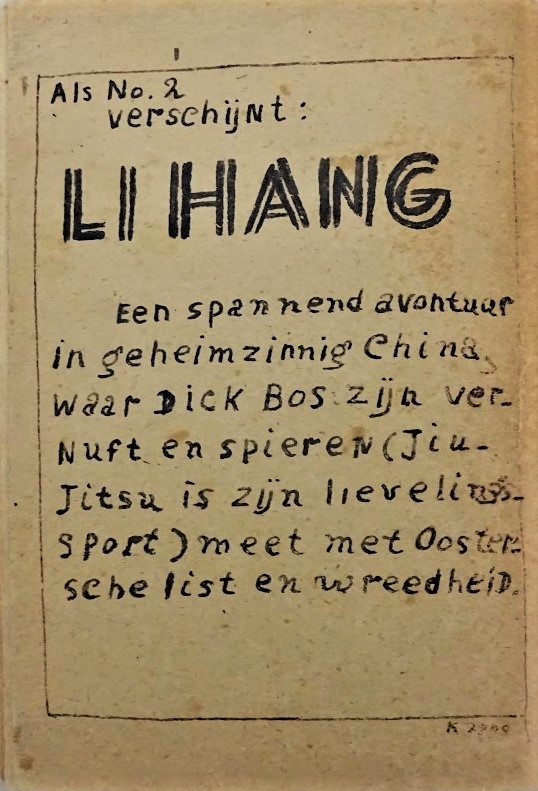 Als No. 2
verschijnt:
LI HANG
Een spannend avontuur
in geheimzinnig China,
waar Dick Bos zijn ver-
nuft en spieren (Jiu-
Jitsu is zijn lievelings-
sport) meet met Ooster-
sche list en wreedheid.